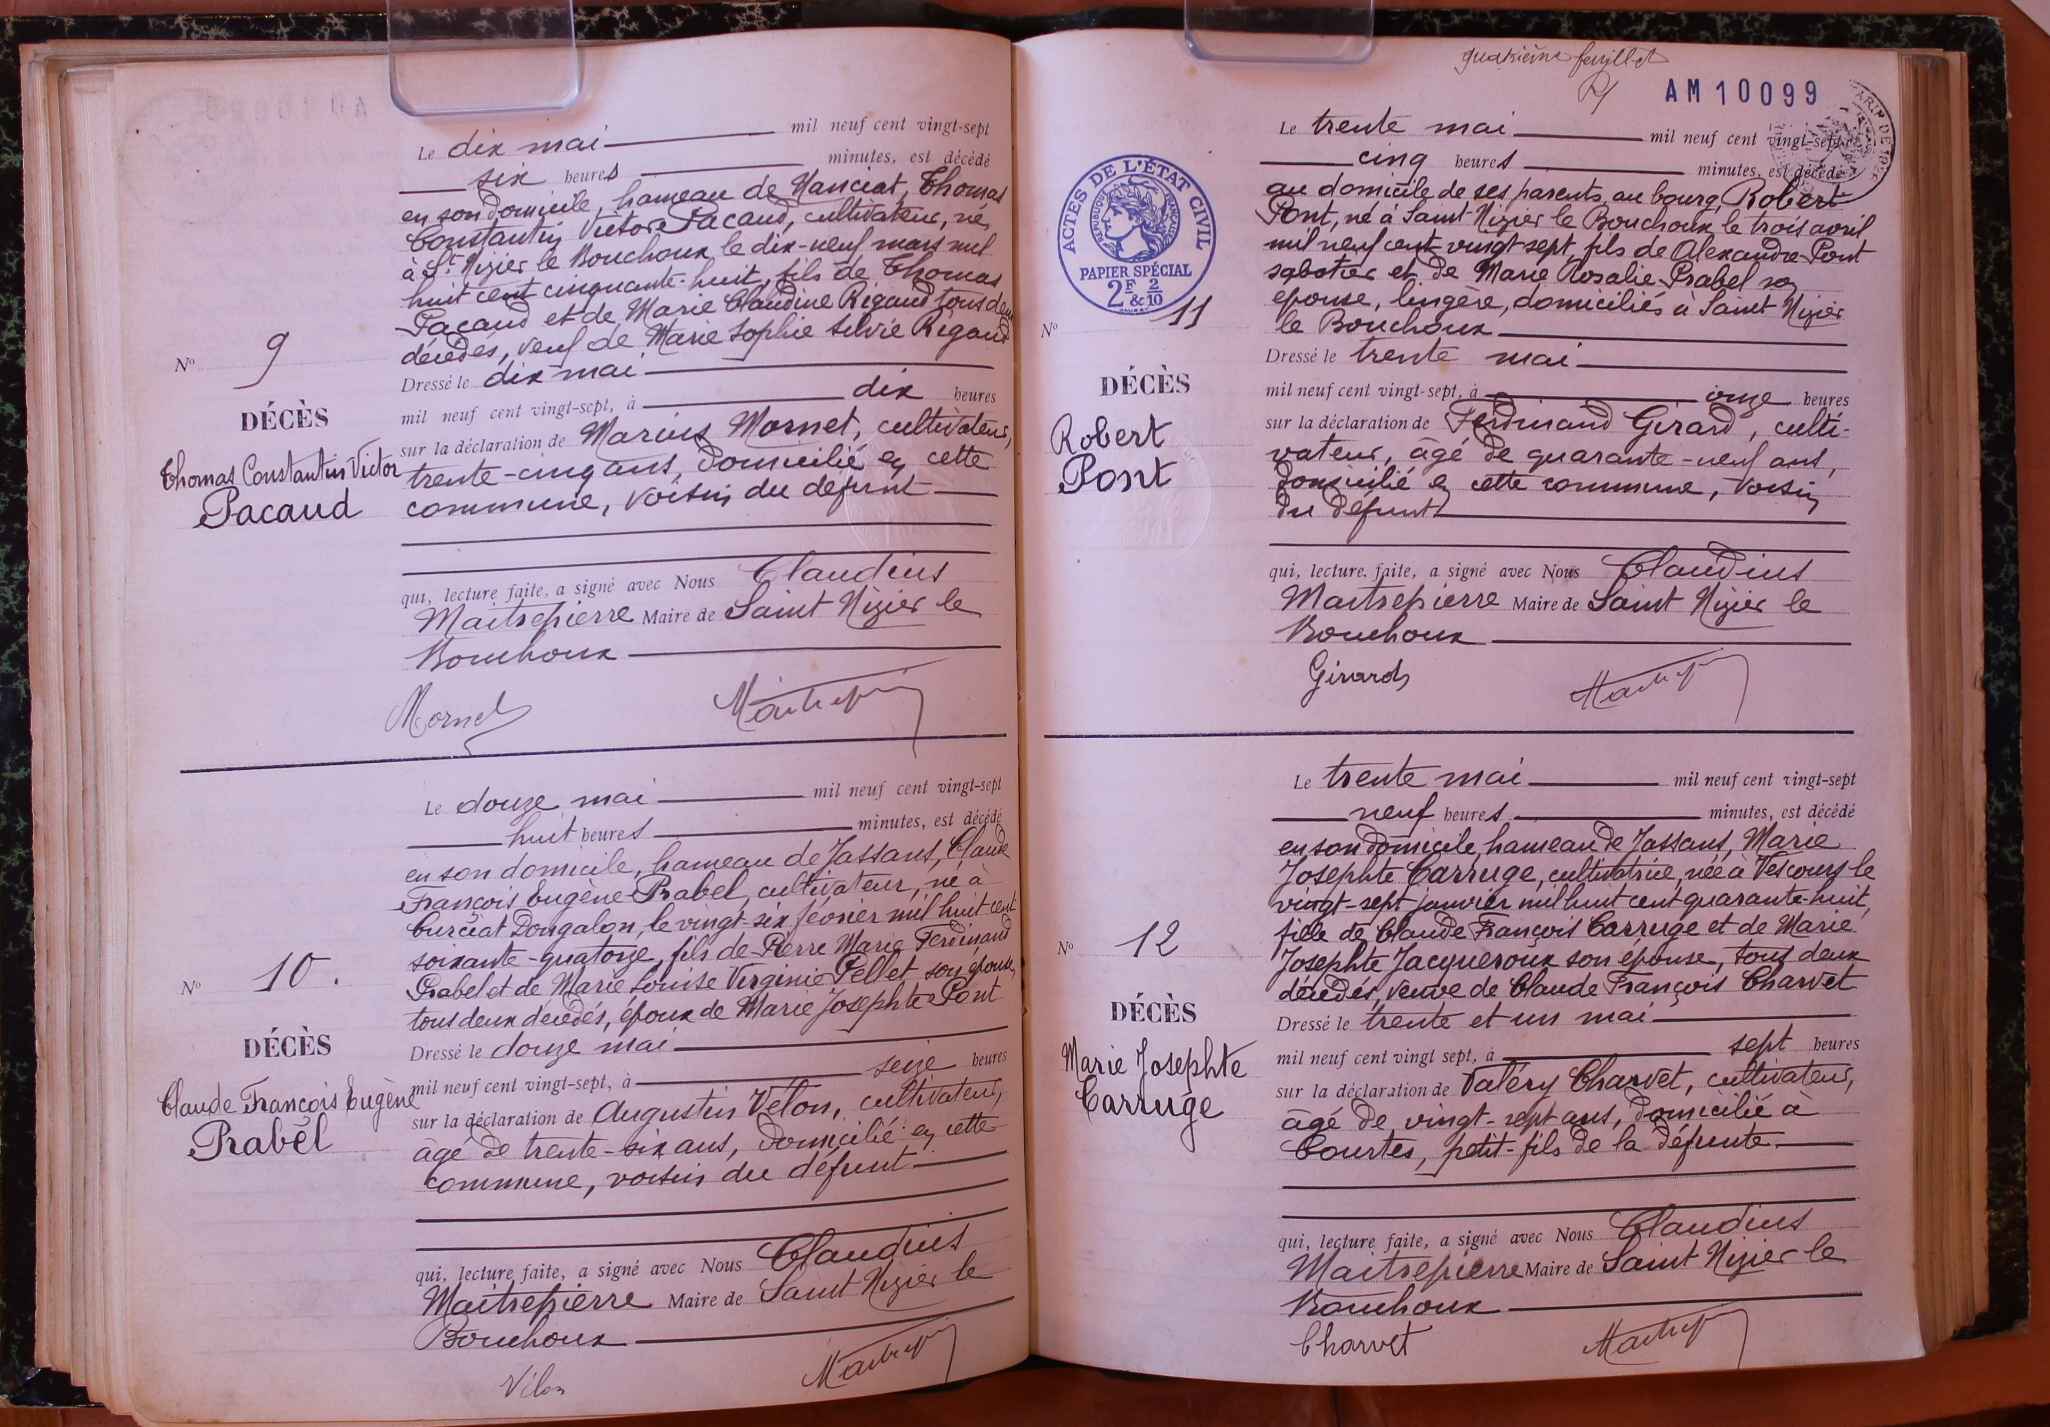 Le dix mai mil neuf cent vingt-sept
six heures minutes, est décédé
en son domicile, hameau de Manciat, Thomas
Constantin Victor Pacaud, cultivateur, né
à St Nizier le Bouchoux le dix-neuf mars mil
huit cent cinquante-huit, fils de Thomas
Pacaud et de Marie Claudine Rigaud tous deux
décédés, veuf de Marie Sophie Silvie Rigaud
Dressé le dix mai
mil neuf cent vingt-sept, à dix heures
sur la déclaration de Marius Mornet, cultivateur,
trente-cinq ans, domicilié en cette
commune, voisin du défunt
qui, lecture faite, a signé avec Nous Claudius
Maitrepierre Maire de Saint Nizier le
Bouchoux
Mornet
Nº 9
DÉCÈS
Thomas Constantin Victor
Pacaud
Le douze mai mil neuf cent vingt-sept
huit heures minutes, est décédé
en son domicile, hameau de Jassans, Claude
François Eugène Prabel, cultivateur, né à
Curciat Dongalon, le vingt-six février mil huit cent
soixante-quatorze, fils de Pierre Marie Ferdinand
Prabel et de Marie Louise Virginie Pellet son épouse,
tous deux décédés, époux de Marie Josephte Pont
Dressé le douze mai
mil neuf cent vingt-sept, à seize heures
sur la déclaration de Augustin Vélon, cultivateur,
âgé de trente-six ans, domicilié en cette
commune, voisin du défunt
qui, lecture faite, a signé avec Nous Claudius
Maitrepierre Maire de Saint Nizier le
Bouchoux
Nº 10.
DÉCÈS
Claude François Eugène
Prabel
quatrième feuillet
AM10099
ACTES DE L'ÉTAT CIVIL
RÉPUBLIQUE FRANÇAISE
PAPIER SPÉCIAL
2F & 2/10
Le trente mai mil neuf cent vingt-sept
cinq heures minutes, est décédé
au domicile de ses parents, au bourg, Robert
Pont, né à Saint Nizier le Bouchoux le trois avril
mil neuf cent vingt-sept, fils de Alexandre Pont
sabotier et de Marie Rosalie Prabel son
épouse, lingère, domiciliés à Saint Nizier
le Bouchoux
Dressé le trente mai
mil neuf cent vingt-sept, à onze heures
sur la déclaration de Ferdinand Girard, culti-
vateur, âgé de quarante-neuf ans,
domicilié en cette commune, voisin
du défunt
qui, lecture faite, a signé avec Nous Claudius
Maitrepierre Maire de Saint Nizier le
Bouchoux
Girard
Nº 11
DÉCÈS
Robert
Pont
Le trente mai mil neuf cent vingt-sept
neuf heures minutes, est décédé
en son domicile, hameau de Jassans, Marie
Josephte Carruge, cultivatrice, née à Vescours le
vingt-sept janvier mil huit cent quarante-huit,
fille de Claude François Carruge et de Marie
Josephte Jacqueroux son épouse, tous deux
décédés, veuve de Claude François Charvet
Dressé le trente et un mai
mil neuf cent vingt sept, à sept heures
sur la déclaration de Valéry Charvet, cultivateur,
âgé de vingt-sept ans, domicilié à
Courtes, petit-fils de la défunte
qui, lecture faite, a signé avec Nous Claudius
Maitrepierre Maire de Saint Nizier le
Bouchoux
Charvet
Nº 12
DÉCÈS
Marie Josephte
Carruge